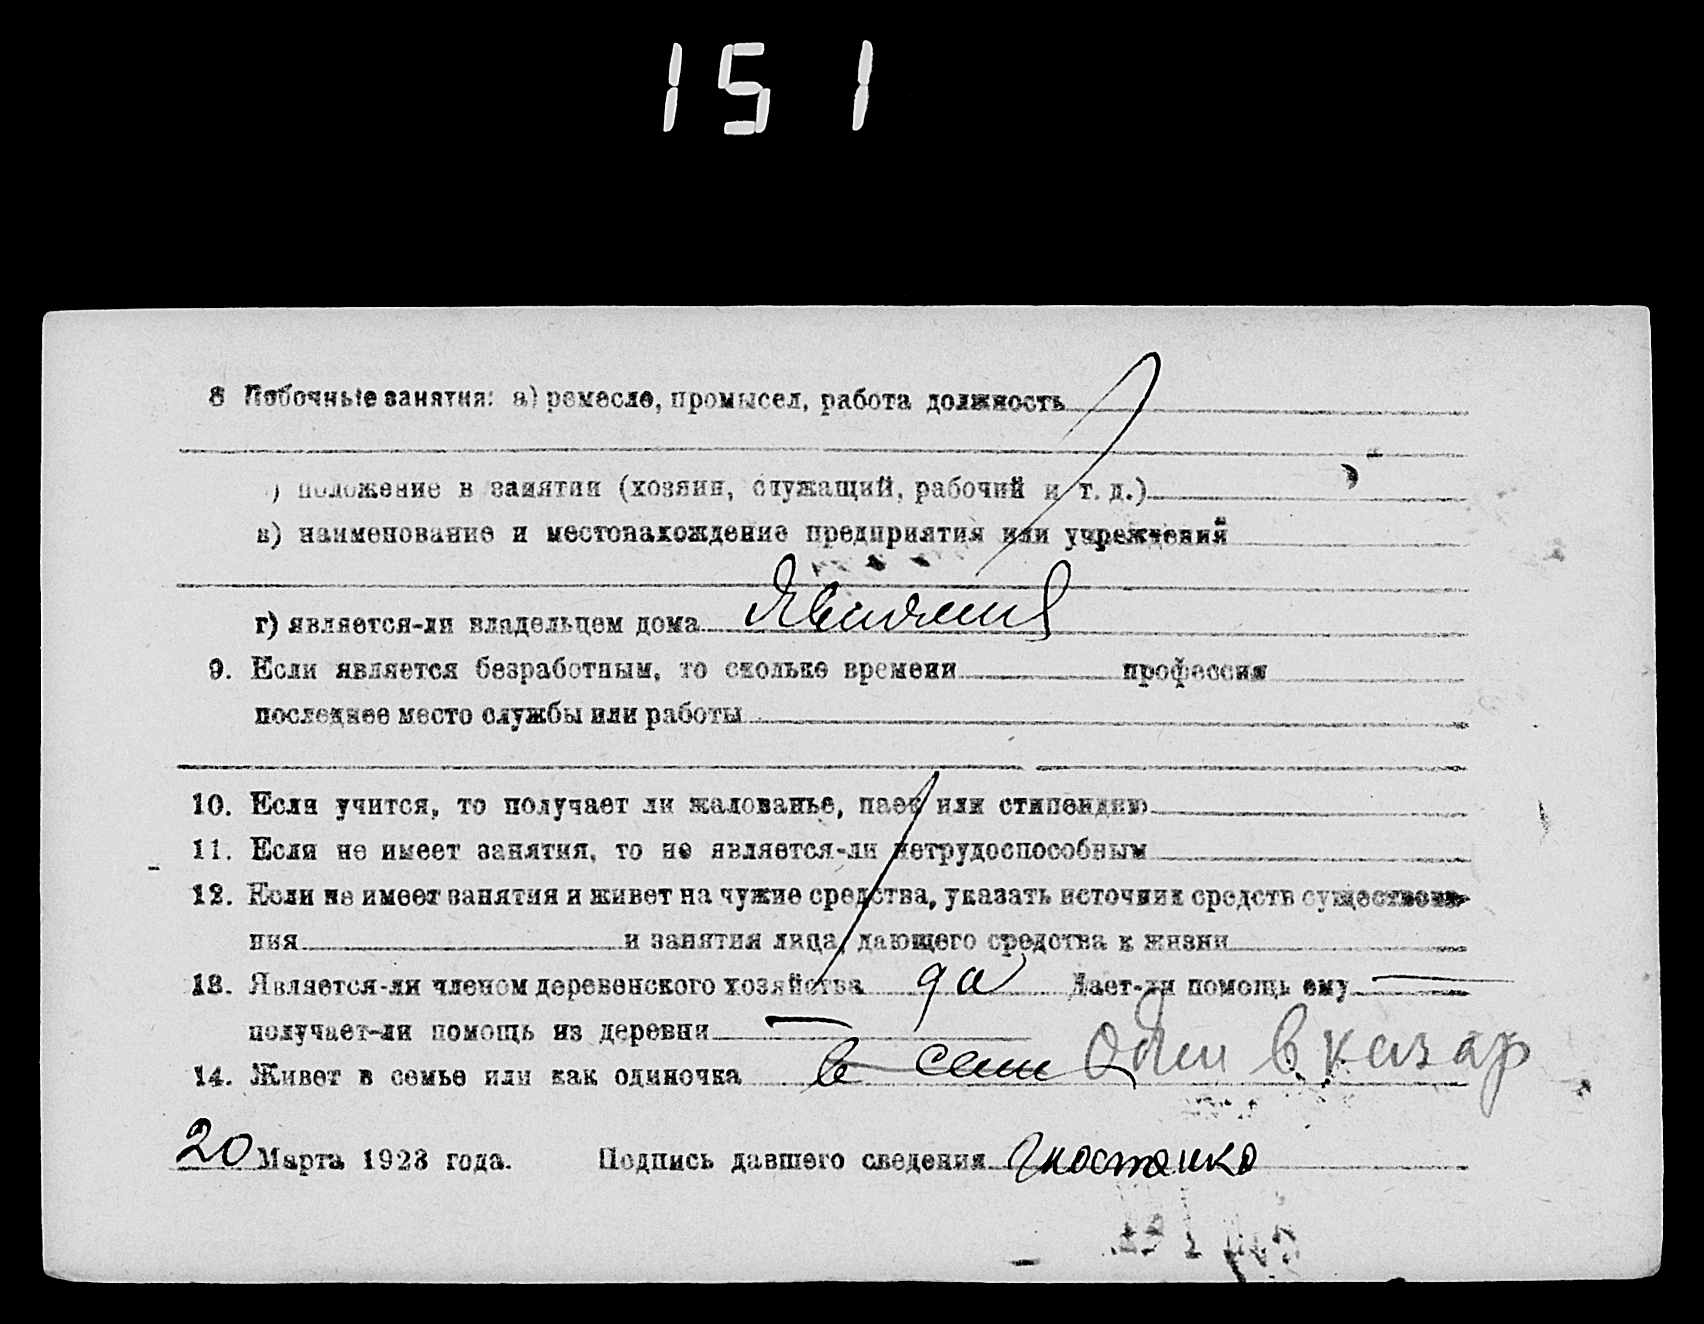 151
8 Побочные занятия: а) ремесле, промысел, работа должность
) положение в занятии (хозяин, служащий, рабочий и т. д.)
в) наименование и местонахождение предприятия или учреждения
г) является-ли владельцем дома
9. Если является безработным, то сколько времени профессия
последнее место службы или работы
10. Если учится, то получает ли жалованье, паек или стипендию
11. Если не имеет занятия, то не является-ли нетрудоспособным
12. Если не имеет занятия и живет на чужие средства, указать источник средств существова-
ния и занятия лица, дающего средства к жизни
13. Является-ли членом деревенского хозяйства да Дает-ли помощь ему —
получает-ли помощь из деревни —
14. Живет в семье или как одиночка в семи один в казар
20 Марта 1923 года. Подпись давшего сведения